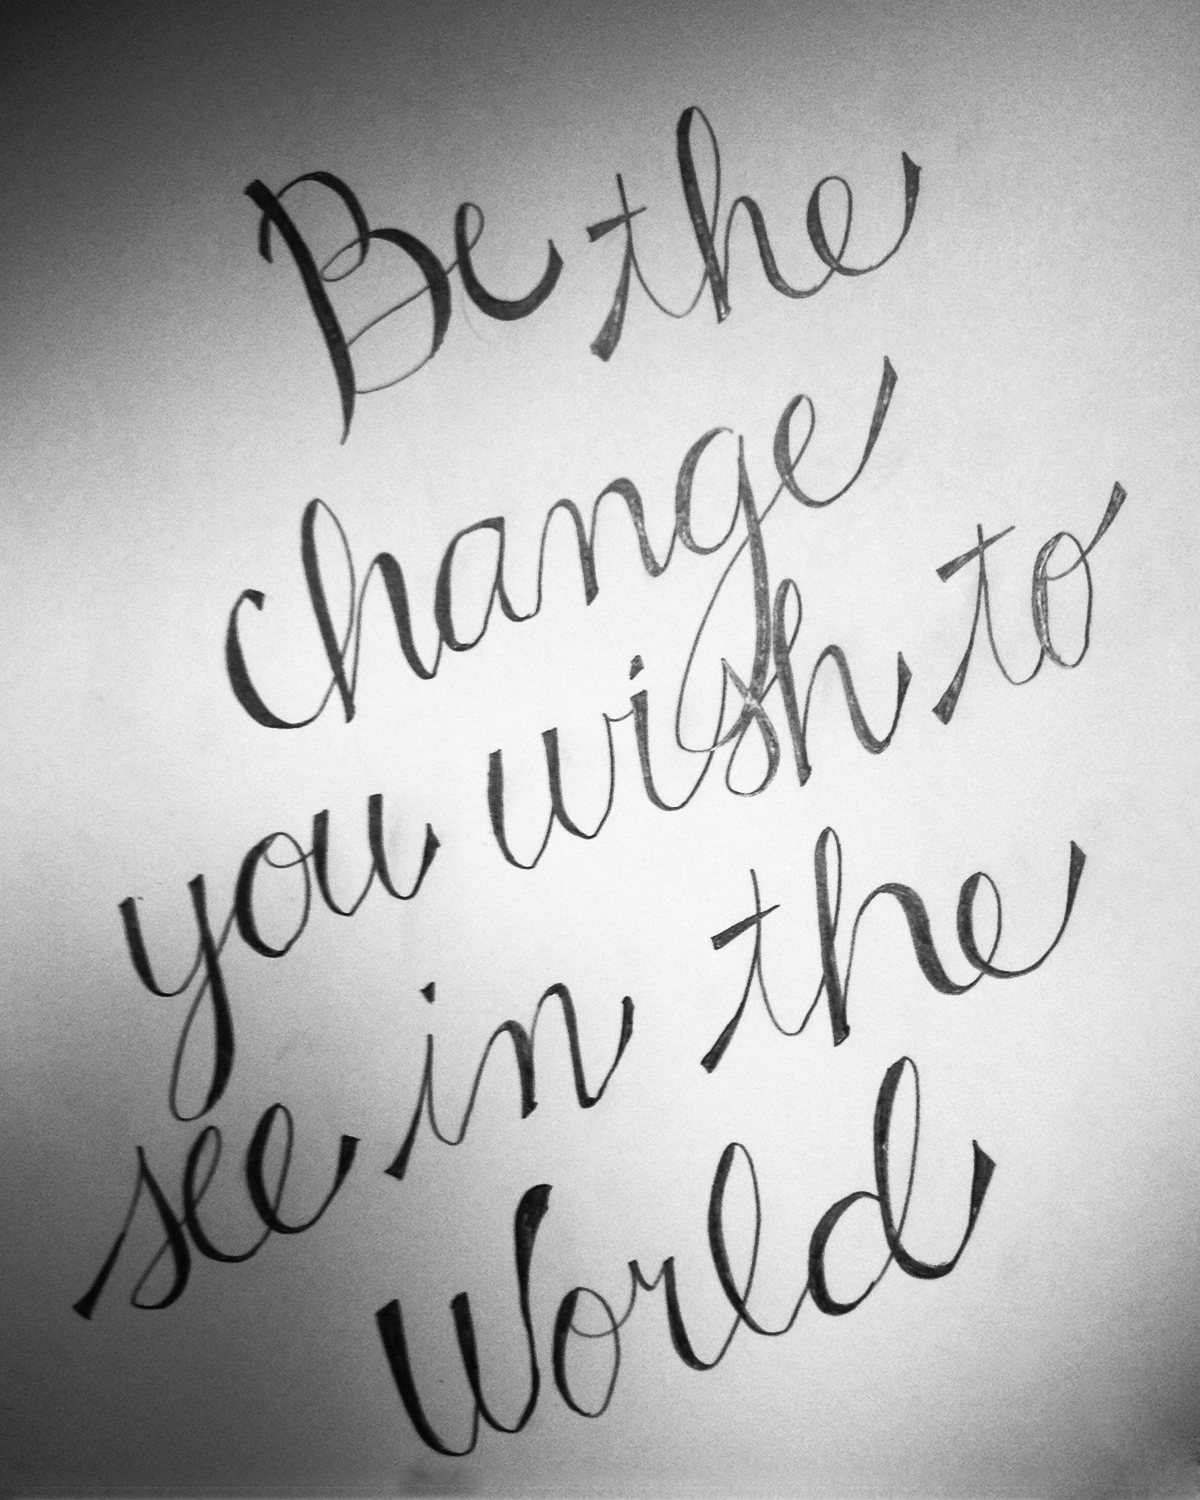 Be the
change
you wish to
see in the
World